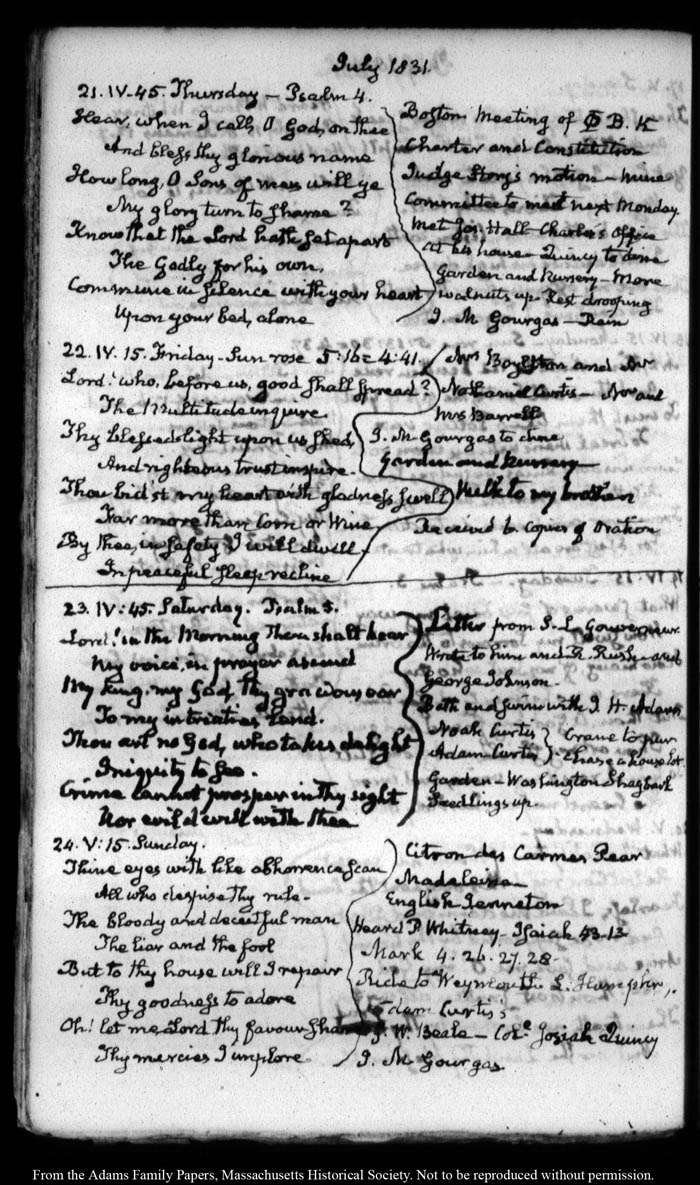 July 1831.
21. IV-45. Thursday - Psalm 4.
Hear, when I call, O God, on thee
And bless thy glorious name
How long, O Sons of men will ye
My glory turn to shame?
Know that the Lord hath set apart
The Godly for his own,
Commune in silence with your heart
Upon your bed, alone
Boston Meeting of Φ B. K
Charter and Constitution
Judge Story's motion - mine
Committee to meet next Monday
Met Jos. Hall - Charles's Office
at his house - Quincy to dine
Garden and Nursery - More
walnuts up. Rest drooping
I. M Gourgas - Rain
22. IV. 15. Friday - Sun rose 5:16 = 4:41.
Lord! who, before us, good shall spread?
The Multitude inquire
Thy blessed light upon us shed,
And righteous trust inspire.
Thou bid'st my heart with gladness swell
Far more than Corn or Wine
By thee, in safety I will dwell
In peaceful sleep recline
Mrs Boylston and Mr
Nathaniel Curtis - Mr and
Mrs Barrell
I. M Gourgas to dine
Garden and Nursery
Walk to my brother
Received Copies of Oration
23. IV:45. Saturday. Psalm 5.
Lord! in the Morning Thou shalt hear
My voice, in prayer ascend
My King, my God, thy gracious ear
To my intreaties lend.
Thou art no God, who takes delight
Iniquity to see.
Crime cannot prosper in thy sight
Nor evil dwell with thee
Letter from S. L Gouverneur.
Wrote to him and R. Rush and
George Johnson.
Bath and swim with I. H. Adams
Noah Curtis } Crane to pur
Adam Curtis } chase a house lot
Garden - Washington Shagbark
Seedlings up.
24. V:15. Sunday.
Thine eyes with like abhorrence scan
All who despise thy rule.
The bloody and deceitful man
The liar and the fool
But to thy house will I repair
Thy goodness to adore
Oh! let me Lord thy favour share
Thy mercies I implore
Citron des Carmes Pear
Madeleine
English Jenneton
Heard P Whitney - Isaiah 53-13
Mark 4. 26. 27. 28.
Ride to Weymouth.
Adam Curtis's
G. W. Beale - Col. Josiah Quincy
I. M Gourgas
From the Adams Family Papers, Massachusetts Historical Society. Not to be reproduced without permission.